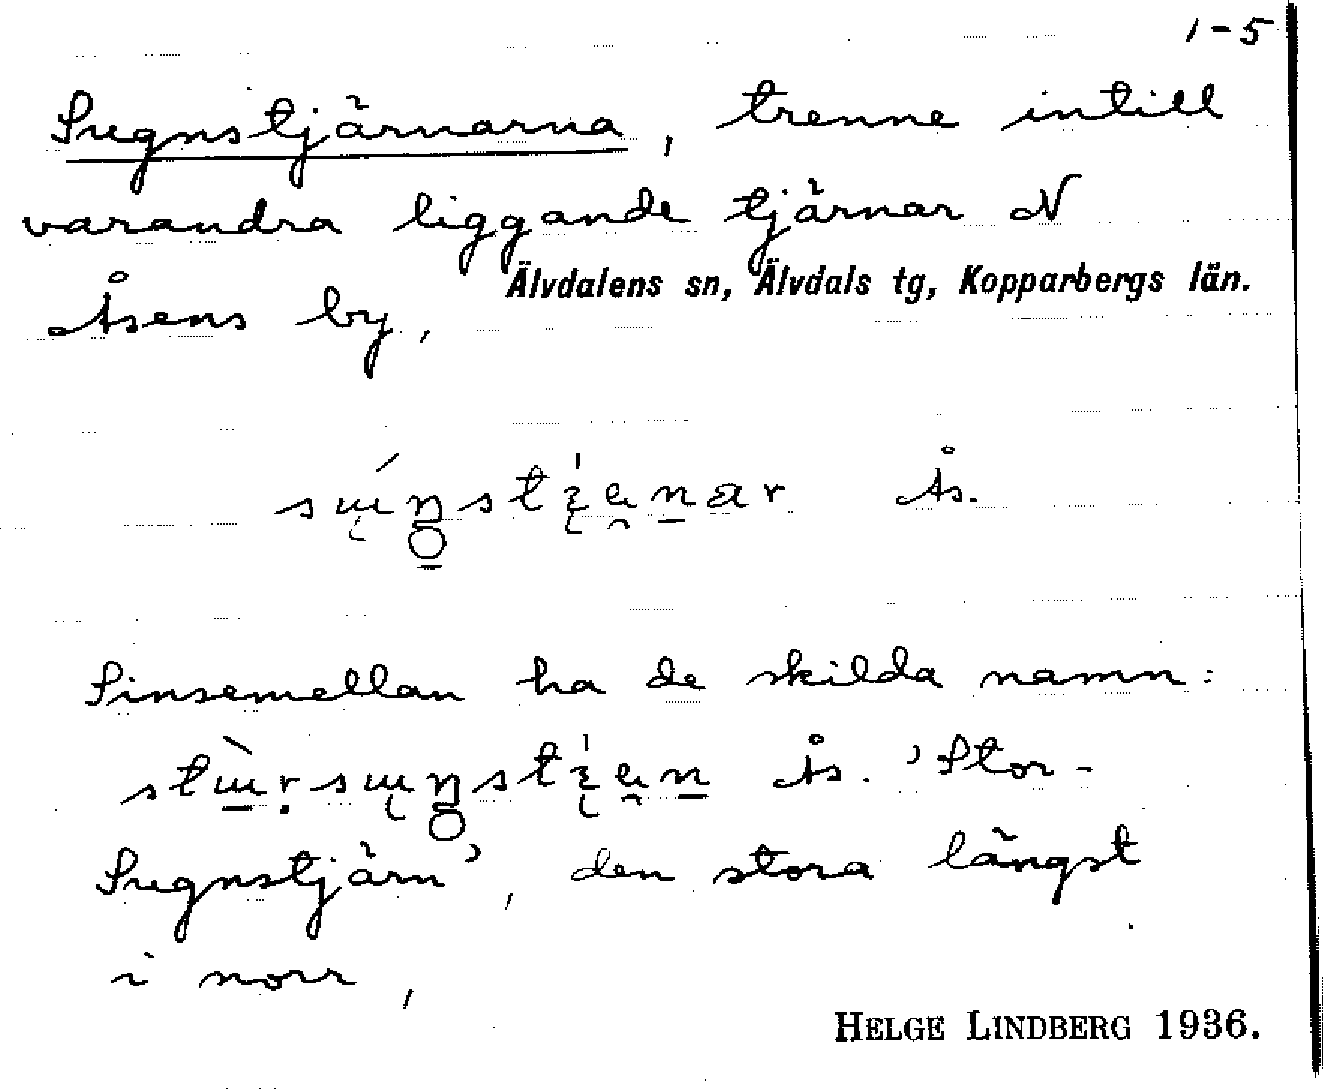 1-5
Sugnstjärnarna, trenne intill
varandra liggande tjärnar N
Åsens by,
Älvdalens sn, Älvdals tg, Kopparbergs län.
Ås.
Sinsemellan ha de skilda namn:
Ås. 'Stor-
Sugnstjärn', den stora längst
i norr,
HELGE LINDBERG 1936.